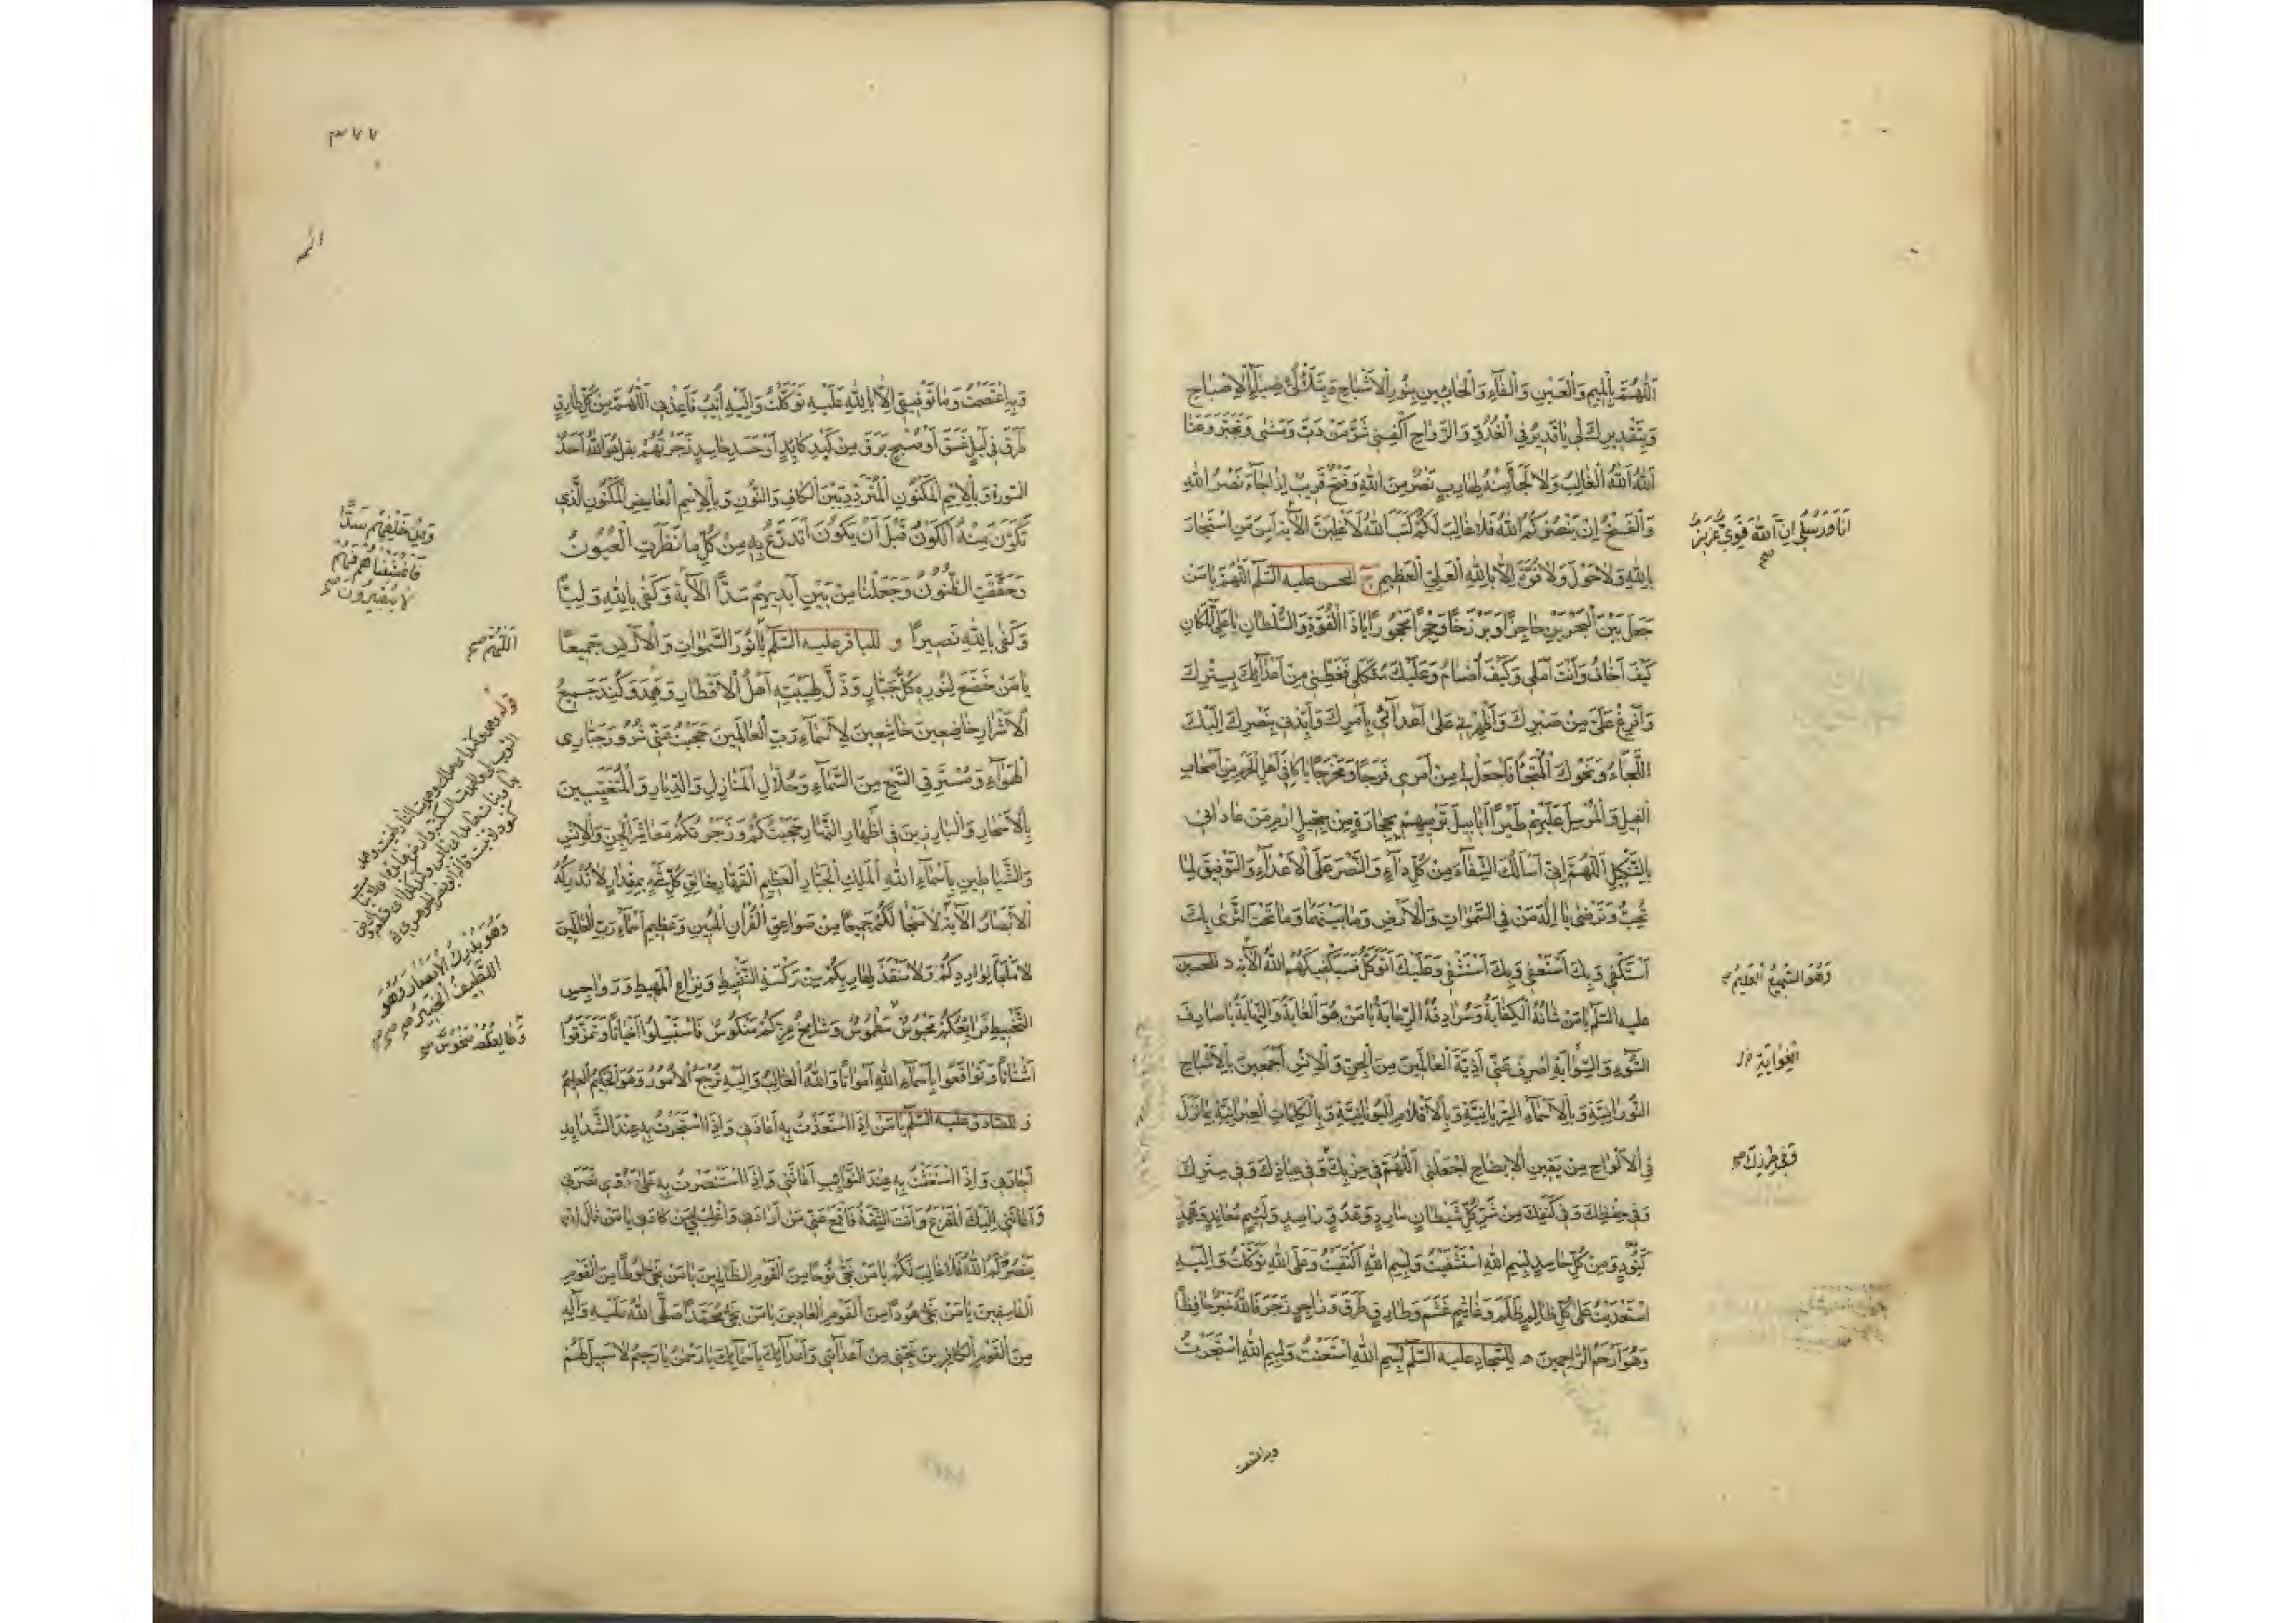 اَللّٰهُمَّ بِالْمِيمِ وَالْعَيْنِ وَالْفَاءِ وَالْحَائَيْنِ بِنُورِ الْاَشْبَاحِ وَبِتَلَأْلُؤِ ضِيَاءِ الْاِصْبَاحِ
وَبِتَقْدِيرِكَ لِي يَا قَدِيرُ فِي الْغُدُوِّ وَالرَّوَاحِ اكْفِنِي شَرَّ مَنْ دَبَّ وَمَشٰى وَتَجَبَّرَ وَعَتَا
اَللّٰهُ اَللّٰهُ الْغَالِبُ وَلَا لَجَأَ مِنْهُ لِهَارِبٍ نَصْرٌ مِنَ اللّٰهِ وَفَتْحٌ قَرِيبٌ اِذَا جَاءَ نَصْرُ اللّٰهِ
وَالْفَتْحُ اِنْ يَنْصُرْكُمُ اللّٰهُ فَلَا غَالِبَ لَكُمْ كَتَبَ اللّٰهُ لَاَغْلِبَنَّ الْآيَةَ اَمِنَ مَنِ اسْتَجَارَ
اَنَا وَرُسُلِي اِنَّ اللّٰهَ قَوِيٌّ عَزِيزٌ صح
بِاللّٰهِ وَلَا حَوْلَ وَلَا قُوَّةَ اِلَّا بِاللّٰهِ الْعَلِيِّ الْعَظِيمِ ج للحسن عليه السّلم اَللّٰهُمَّ يَا مَنْ
جَعَلَ بَيْنَ الْبَحْرَيْنِ حَاجِزًا وَبَرْزَخًا وَحِجْرًا مَحْجُورًا يَا ذَا الْقُوَّةِ وَالسُّلْطَانِ يَا عَلِيَّ الْمَكَانِ
كَيْفَ اَخَافُ وَاَنْتَ اَمَلِي وَكَيْفَ اُضَامُ وَعَلَيْكَ مُتَّكَلِي فَغَطِّنِي مِنْ اَعْدَائِكَ بِسِتْرِكَ
وَاَفْرِغْ عَلَيَّ مِنْ صَبْرِكَ وَاَظْهِرْنِي عَلٰى اَعْدَائِي بِاَمْرِكَ وَاَيِّدْنِي بِنَصْرِكَ اِلَيْكَ
اللَّجَاءُ وَنَحْوَكَ الْمُلْتَجَأُ فَاجْعَلْ لِي مِنْ اَمْرِي فَرَجًا وَمَخْرَجًا يَا كَافِيَ اَهْلِ الْحَرَمِ مِنْ اَصْحَابِ
الْفِيلِ وَالْمُرْسِلَ عَلَيْهِمْ طَيْرًا اَبَابِيلَ تَرْمِيهِمْ بِحِجَارَةٍ مِنْ سِجِّيلٍ اِرْمِ مَنْ عَادَانِي
بِالتَّنْكِيلِ اَللّٰهُمَّ اِنِّي اَسْاَلُكَ الشِّفَاءَ مِنْ كُلِّ دَاءٍ وَالنَّصْرَ عَلَى الْاَعْدَاءِ وَالتَّوْفِيقَ لِمَا
تُحِبُّ وَتَرْضٰى يَا اِلٰهَ مَنْ فِي السَّمٰوَاتِ وَالْاَرْضِ وَمَا بَيْنَهُمَا وَمَا تَحْتَ الثَّرٰى بِكَ
اَسْتَكْفِي وَبِكَ اَسْتَعْفِي وَبِكَ اَسْتَشْفِي وَعَلَيْكَ اَتَوَكَّلُ فَسَيَكْفِيكَهُمُ اللّٰهُ الْآيَةَ د للحسين
وَهُوَ السَّمِيعُ الْعَلِيمُ صح
عليه السّلم يَا مَنْ شَأْنُهُ الْكِفَايَةُ وَسُرَادِقُهُ الرِّعَايَةُ يَا مَنْ هُوَ الْغَايَةُ وَالنِّهَايَةُ يَا صَارِفَ
السُّوءِ وَالسِّوَايَةِ اصْرِفْ عَنِّي اَذِيَّةَ الْعَالَمِينَ مِنَ الْجِنِّ وَالْاِنْسِ اَجْمَعِينَ بِالْاَشْبَاحِ
الغَوَايَةِ خ ل
النُّورَانِيَّةِ وَبِالْاَسْمَاءِ السُّرْيَانِيَّةِ وَبِالْاَقْلَامِ الْيُونَانِيَّةِ وَبِالْكَلِمَاتِ الْعِبْرَانِيَّةِ بِمَا نَزَلَ
فِي الْاَلْوَاحِ مِنْ يَقِينِ الْاِيضَاحِ اجْعَلْنِي اَللّٰهُمَّ فِي حِزْبِكَ وَفِي عِيَاذِكَ وَفِي سِتْرِكَ
وَفِي حِرْزِكَ صح
وَفِي حِفْظِكَ وَفِي كَنَفِكَ مِنْ شَرِّ كُلِّ شَيْطَانٍ مَارِدٍ وَعَدُوٍّ رَاصِدٍ وَلَئِيمٍ مُعَانِدٍ وَضِدٍّ
كَنُودٍ وَمِنْ كُلِّ حَاسِدٍ بِبِسْمِ اللّٰهِ اسْتَشْفَيْتُ وَبِسْمِ اللّٰهِ اكْتَفَيْتُ وَعَلَى اللّٰهِ تَوَكَّلْتُ وَاِلَيْهِ
اسْتَعْدَيْتُ عَلٰى كُلِّ ظَالِمٍ ظَلَمَ وَغَاشِمٍ غَشَمَ وَطَارِقٍ طَرَقَ وَزَاجِرٍ زَجَرَ فَاللّٰهُ خَيْرٌ حَافِظًا
وَهُوَ اَرْحَمُ الرَّاحِمِينَ ه للسّجاد عليه السّلم بِسْمِ اللّٰهِ اسْتَعَنْتُ وَبِسْمِ اللّٰهِ اسْتَجَرْتُ
وبه اعتصمت
٣٧٧
وَبِهِ اعْتَصَمْتُ وَمَا تَوْفِيقِي اِلَّا بِاللّٰهِ عَلَيْهِ تَوَكَّلْتُ وَاِلَيْهِ اُنِيبُ فَاَعِذْنِي اَللّٰهُمَّ مِنْ كُلِّ طَارِقٍ
طَرَقَ فِي لَيْلٍ غَسَقَ اَوْ صُبْحٍ بَرَقَ مِنْ كَيْدِ كَائِدٍ اَوْ حَسَدِ حَاسِدٍ زَجَرْتُهُمْ بِقُلْ هُوَ اللّٰهُ اَحَدٌ
السّورة وَبِالْاِسْمِ الْمَكْنُونِ الْمُتَرَدِّدِ بَيْنَ الْكَافِ وَالنُّونِ وَبِالْاِسْمِ الْغَامِضِ الْمَكْنُونِ الَّذِي
تَكَوَّنَ مِنْهُ الْكَوْنُ قَبْلَ اَنْ يَكُونَ اَتَدَرَّعُ بِهِ مِنْ كُلِّ مَا نَظَرَتِ الْعُيُونُ
وَحَقَّقَتِ الظُّنُونُ وَجَعَلْنَا مِنْ بَيْنِ اَيْدِيهِمْ سَدًّا الْآيَةَ وَكَفٰى بِاللّٰهِ وَلِيًّا
وَمِنْ خَلْفِهِمْ سَدًّا
فَاَغْشَيْنَاهُمْ فَهُمْ
لَا يُبْصِرُونَ صح
وَكَفٰى بِاللّٰهِ نَصِيرًا و للباقر عليه السّلم يَا نُورَ السَّمٰوَاتِ وَالْاَرَضِينَ جَمِيعًا
اَللّٰهُمَّ صح
يَا مَنْ خَضَعَ لِنُورِهِ كُلُّ جَبَّارٍ وَذَلَّ لِهَيْبَتِهِ اَهْلُ الْاَقْطَارِ وَهَمَدَ وَكَبَدَ جَمِيعُ
الْاَشْرَارِ خَاضِعِينَ خَاشِعِينَ لِاَسْمَاءِ رَبِّ الْعَالَمِينَ حَجَبْتُ عَنِّي شُرُورَ جَبَّارِي
الْهَوَاءِ وَمُسْتَرِقِي السَّمْعِ مِنَ السَّمَاءِ وَحُلَّالِ الْمَنَازِلِ وَالدِّيَارِ وَالْمُتَغَيِّبِينَ
بِالْاَسْحَارِ وَالْبَارِزِينَ فِي اَظْهَارِ النَّهَارِ حَجَبْتُكُمْ وَزَجَرْتُكُمْ مَعَاشِرَ الْجِنِّ وَالْاِنْسِ
وَالشَّيَاطِينِ بِاَسْمَاءِ اللّٰهِ الْمَلِكِ الْجَبَّارِ الْعَظِيمِ الْقَهَّارِ خَالِقِ كُلِّ شَيْءٍ بِمِقْدَارٍ لَا تُدْرِكُهُ
الْاَبْصَارُ الْآيَةَ لَا مَنْجَا لَكُمْ جَمِيعًا مِنْ صَوَاعِقِ الْقُرْآنِ الْمُبِينِ وَعَظِيمِ اَسْمَاءِ رَبِّ الْعَالَمِينَ
وَهُوَ يُدْرِكُ الْاَبْصَارَ وَهُوَ
اللَّطِيفُ الْخَبِيرُ صح
لَا مَلْجَأَ لِوَارِدِكُمْ وَلَا مُنْقِذَ لِهَارِبِكُمْ مِنْ رَكْسَةِ التَّثْبِيطِ وَنِزَاعِ الْمَهِيطِ وَرَوَاجِسِ
التَّخْبِيطِ فَرَائِغُكُمْ مَحْبُوسٌ مَطْمُوسٌ وَشَامِخُ عِزِّكُمْ مَنْكُوسٌ فَاسْتَبْسِلُوا اَخْيَاتًا وَتَمَزَّقُوا
اَشْتَاتًا وَتَوَاقَعُوا بِاَسْمَاءِ اللّٰهِ اَمْوَاتًا وَاللّٰهُ الْغَالِبُ وَاِلَيْهِ تُرْجَعُ الْاُمُورُ وَهُوَ الْحَكِيمُ الْعَلِيمُ
ز للصّادق عليه السّلم يَا مَنْ اِذَا اسْتَعَذْتُ بِهِ اَعَاذَنِي وَاِذَا اسْتَجَرْتُ بِهِ عِنْدَ الشَّدَائِدِ
اَجَارَنِي وَاِذَا اسْتَغَثْتُ بِهِ عِنْدَ النَّوَائِبِ اَغَاثَنِي وَاِذَا اسْتَنْصَرْتُ بِهِ عَلٰى عَدُوِّي نَصَرَنِي
وَاَعَانَنِي اِلَيْكَ الْمَفْزَعُ وَاَنْتَ الثِّقَةُ فَاقْمَعْ عَنِّي مَنْ اَرَادَنِي وَاغْلِبْ لِي مَنْ كَادَنِي يَا مَنْ قَالَ اِنْ
يَنْصُرْكُمُ اللّٰهُ فَلَا غَالِبَ لَكُمْ يَا مَنْ نَجّٰى نُوحًا مِنَ الْقَوْمِ الظَّالِمِينَ يَا مَنْ نَجّٰى لُوطًا مِنَ الْقَوْمِ
الْفَاسِقِينَ يَا مَنْ نَجّٰى هُودًا مِنَ الْقَوْمِ الْعَادِينَ يَا مَنْ نَجّٰى مُحَمَّدًا صَلَّى اللّٰهُ عَلَيْهِ وَآلِهِ
مِنَ الْقَوْمِ الْكَافِرِينَ نَجِّنِي مِنْ اَعْدَائِي وَاَعْدَائِكَ بِاَسْمَائِكَ يَا رَحْمٰنُ يَا رَحِيمُ لَا سَبِيلَ لَهُمْ